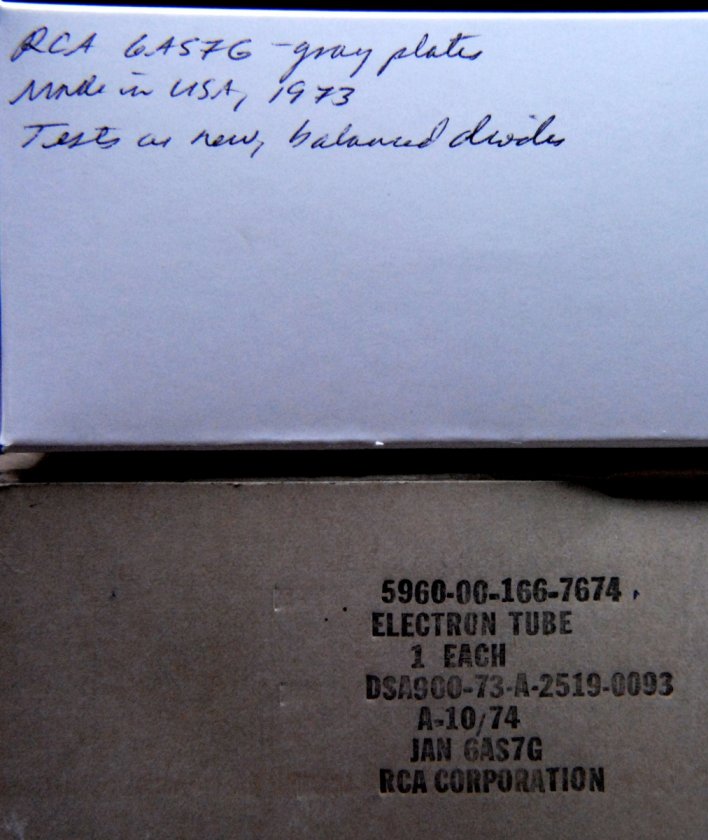 RCA 6AS7G - gray plates
Made in USA, 1973
Tests as new, balanced diodes
5960-00-166-7674
ELECTRON TUBE
1 EACH
DSA900-73-A-2519-0093
A-10/74
JAN 6AS7G
RCA CORPORATION